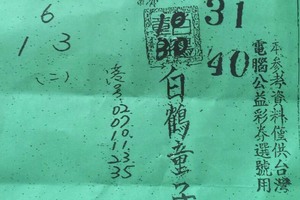 本參考資料僅供台灣
電腦公益彩券選號用
31
40
10
30
白鶴童子
02
07
10
11
13
23
35
6
1 3
(二)